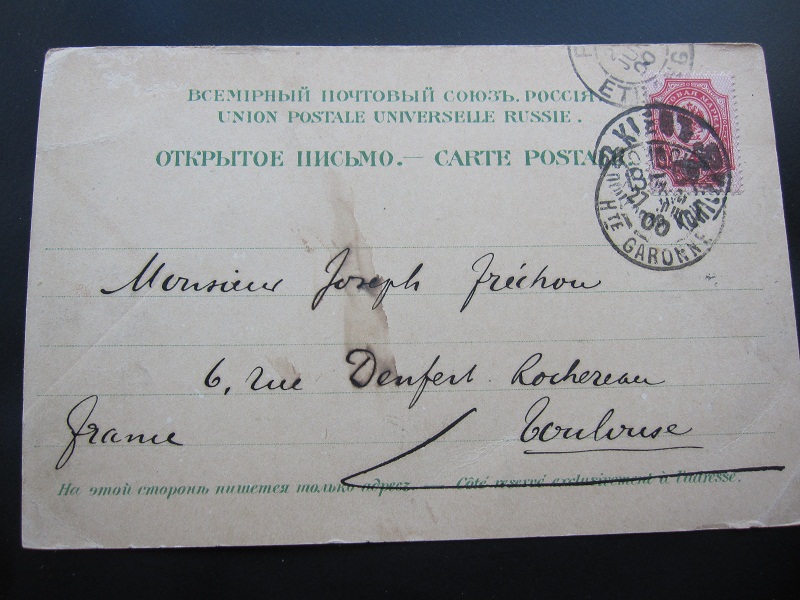 ВСЕМІРНЫЙ ПОЧТОВЫЙ СОЮЗЪ. РОССІЯ
UNION POSTALE UNIVERSELLE RUSSIE.
ОТКРЫТОЕ ПИСЬМО.— CARTE POSTALE
КІЕВ
Hᵀᴱ GARONNE
00
Monsieur Joseph Fréchou
6, rue Denfert. Rochereau
France Toulouse
На этой сторонѣ пишется только адресъ. — Côté reservé exclusivement à l'adresse.